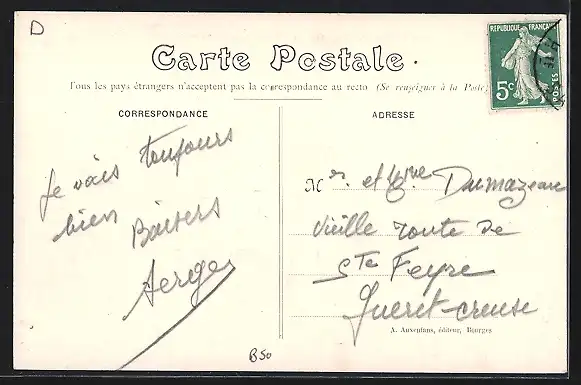 D
RÉPUBLIQUE FRANÇAISE
5c
POSTES
Carte Postale.
Tous les pays étrangers n'acceptent pas la correspondance au recto (Se renseigner à la Poste)
CORRESPONDANCE
Je vais toujours
bien Baisers
Serge
ADRESSE
Mr. et Mme Dumazeau
vieille route de
Ste Feyre
Gueret-creuse
A. Auxenfans, éditeur, Bourges
B50